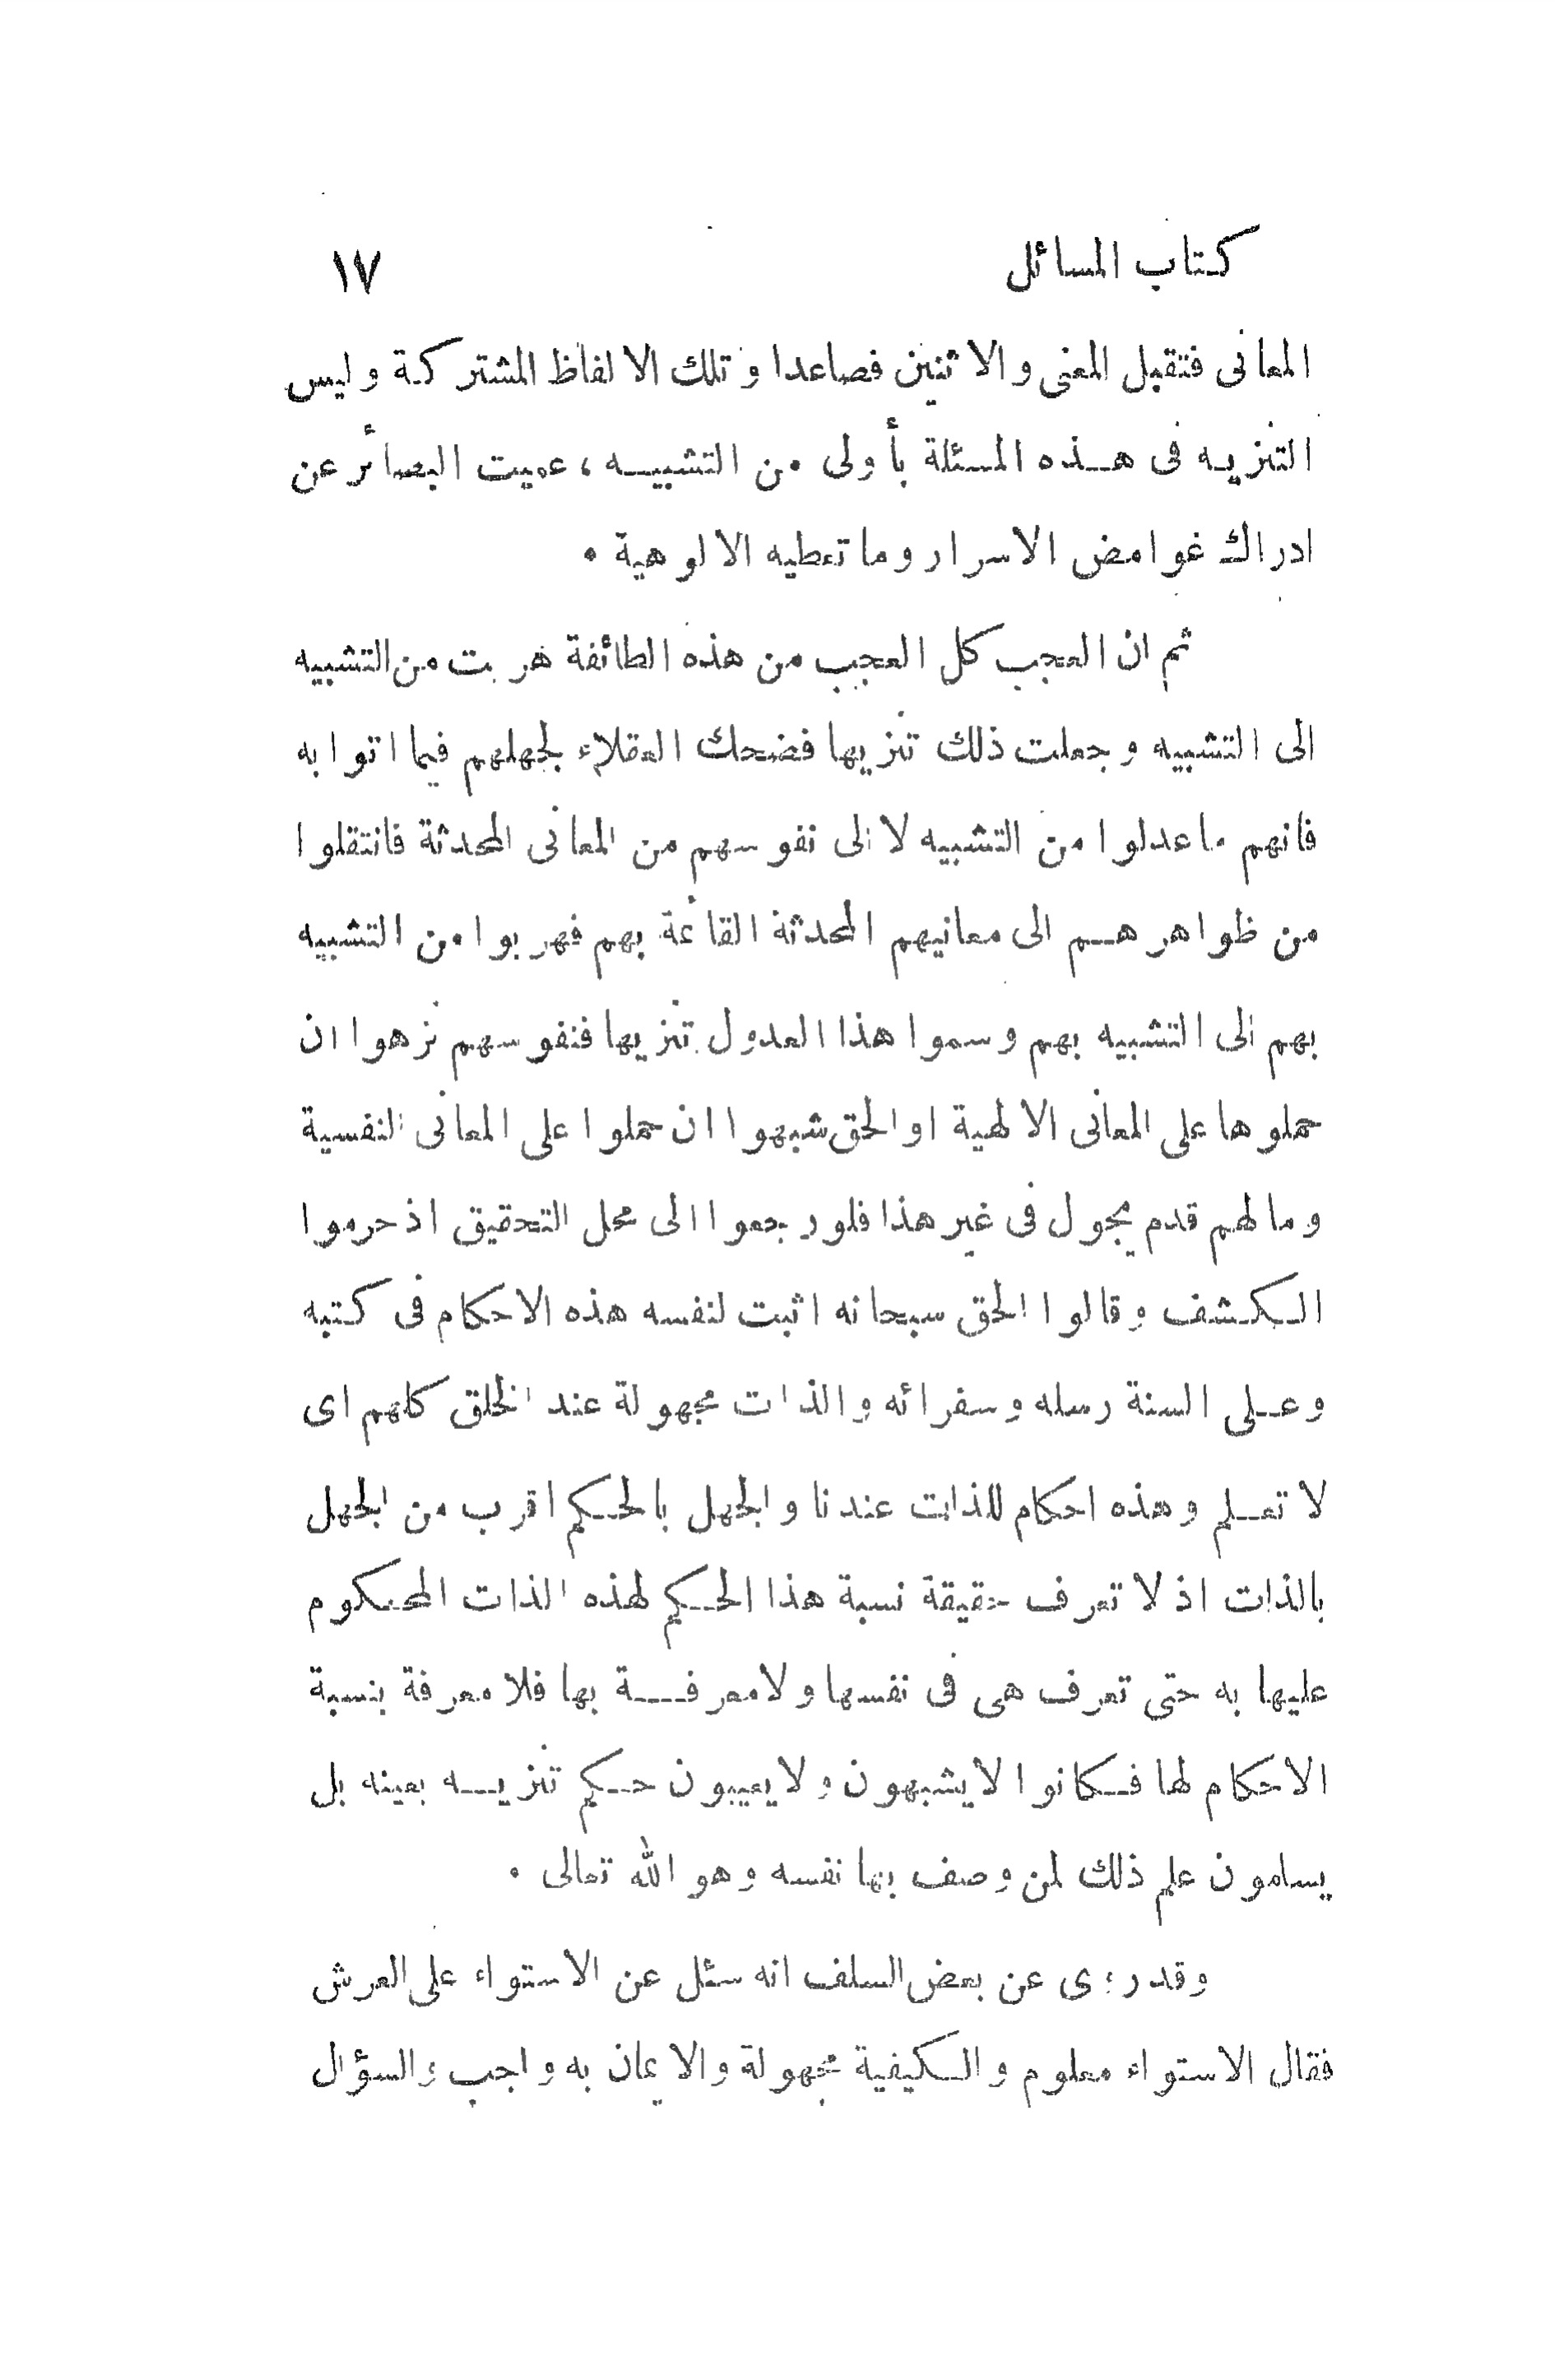 كتاب المسائل ١٧
المعانى فتقبل المعنى والاثنين فصاعدا وتلك الالفاظ المشتركة وليس
التنزيه فى هذه المسئلة بأولى من التشبيه، عميت البصائر عن
ادراك غوامض الاسرار وما تعطيه الالوهية •
ثم ان العجب كل العجب من هذه الطائفة هربت من التشبيه
الى التشبيه وجعلت ذلك تنزيها فضحك العقلاء لجهلهم فيما اتوا به
فانهم ما عدلوا من التشبيه لا الى نفوسهم من المعانى المحدثة فانتقلوا
من ظواهرهم الى معانيهم المحدثة القائمة بهم فهربوا من التشبيه
بهم الى التشبيه بهم وسموا هذا العدول تنزيها فنفوسهم نزهوا ان
حملوها على المعانى الالهية او الحق شبهوا ان حملوا على المعانى النفسية
وما لهم قدم يجول فى غير هذا فلو رجعوا الى محل التحقيق اذ حرموا
الكشف وقالوا الحق سبحانه اثبت لنفسه هذه الاحكام فى كتبه
وعلى السنة رسله وسفرائه والذات مجهولة عند الخلق كلهم اى
لا تعلم وهذه احكام للذات عندنا والجهل بالحكم اقرب من الجهل
بالذات اذ لا تعرف حقيقة نسبة هذا الحكم لهذه الذات المحكوم
عليها به حتى تعرف هى فى نفسها ولا معرفة بها فلا معرفة بنسبة
الاحكام لها فكانوا لا يشبهون ولا يعيبون حكم تنزيه بعينه بل
يسلمون علم ذلك لمن وصف بها نفسه وهو الله تعالى •
وقد رءى عن بعض السلف انه سئل عن الاستواء على العرش
فقال الاستواء معلوم والكيفية مجهولة والايمان به واجب والسؤال